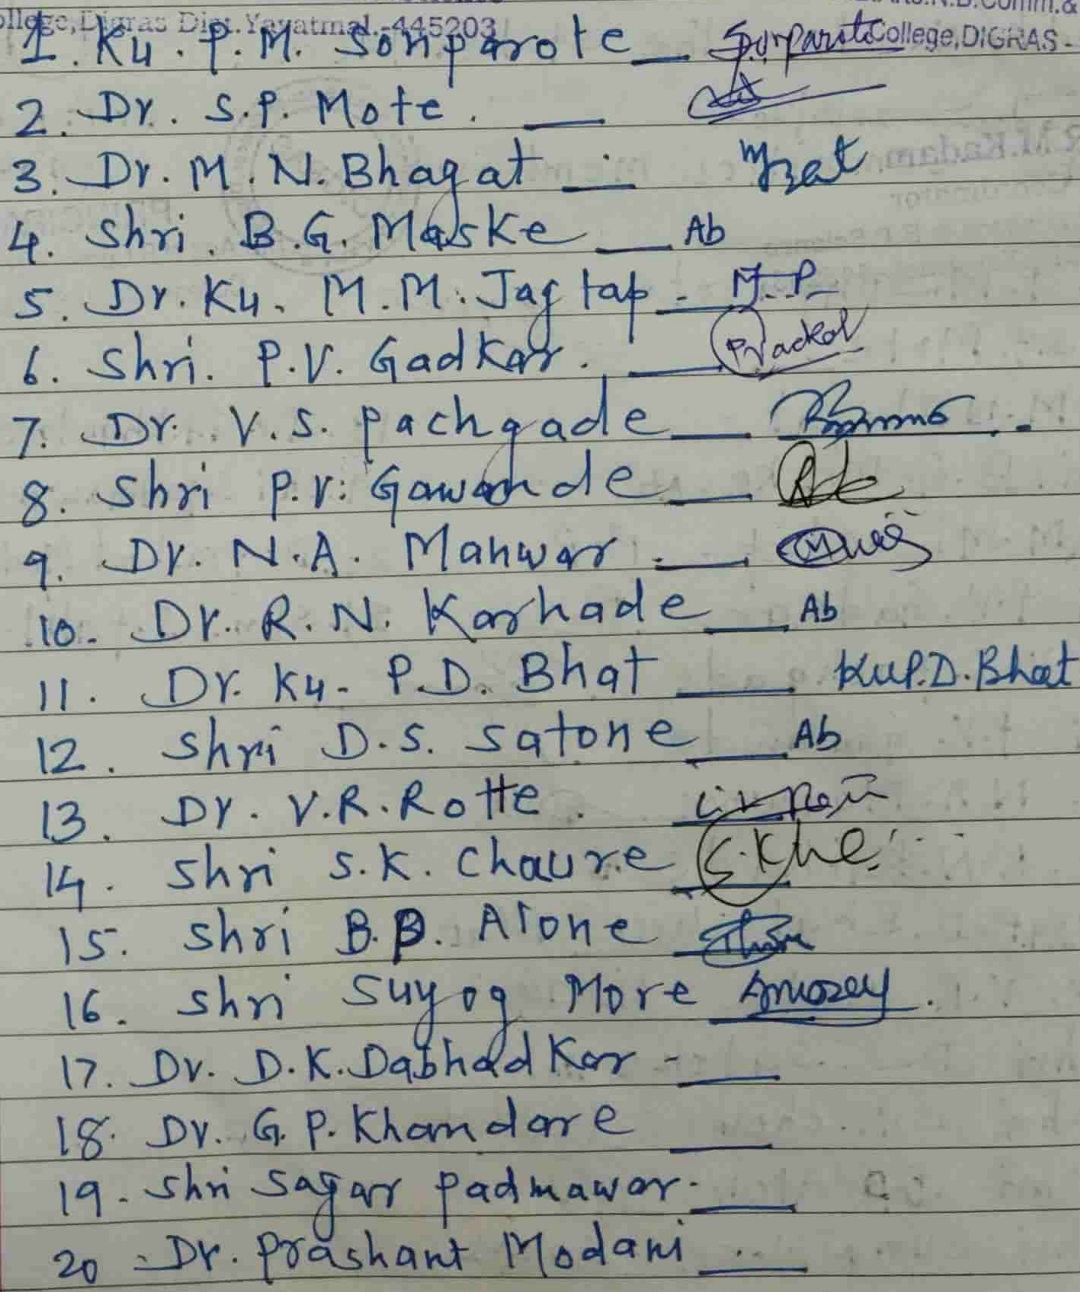 ollege, Digras Dist. Yavatmal.-445203
College, DIGRAS -
1. Ku. P.M. Sonparote
2. Dr. S.P. Mote.
3. Dr. M.N. Bhagat
4. Shri. B.G. Maske Ab
5. Dr. Ku. M.M. Jagtap - M.P
6. Shri. P.V. Gadkar.
7. Dr. V.S. Pachgade
8. Shri P.V. Gawande
9. Dr. N.A. Manwar
10. Dr. R.N. Karhade Ab
11. Dr. Ku. P.D. Bhat Ku P.D. Bhat
12. Shri D.S. Satone Ab
13. Dr. V.R. Rotte.
14. Shri S.K. Chaure
15. Shri B.B. Alone
16. Shri Suyog More
17. Dr. D.K. Dabhadkar -
18. Dr. G.P. Khandare
19. Shri Sagar Padmawar.
20. Dr. Prashant Modani